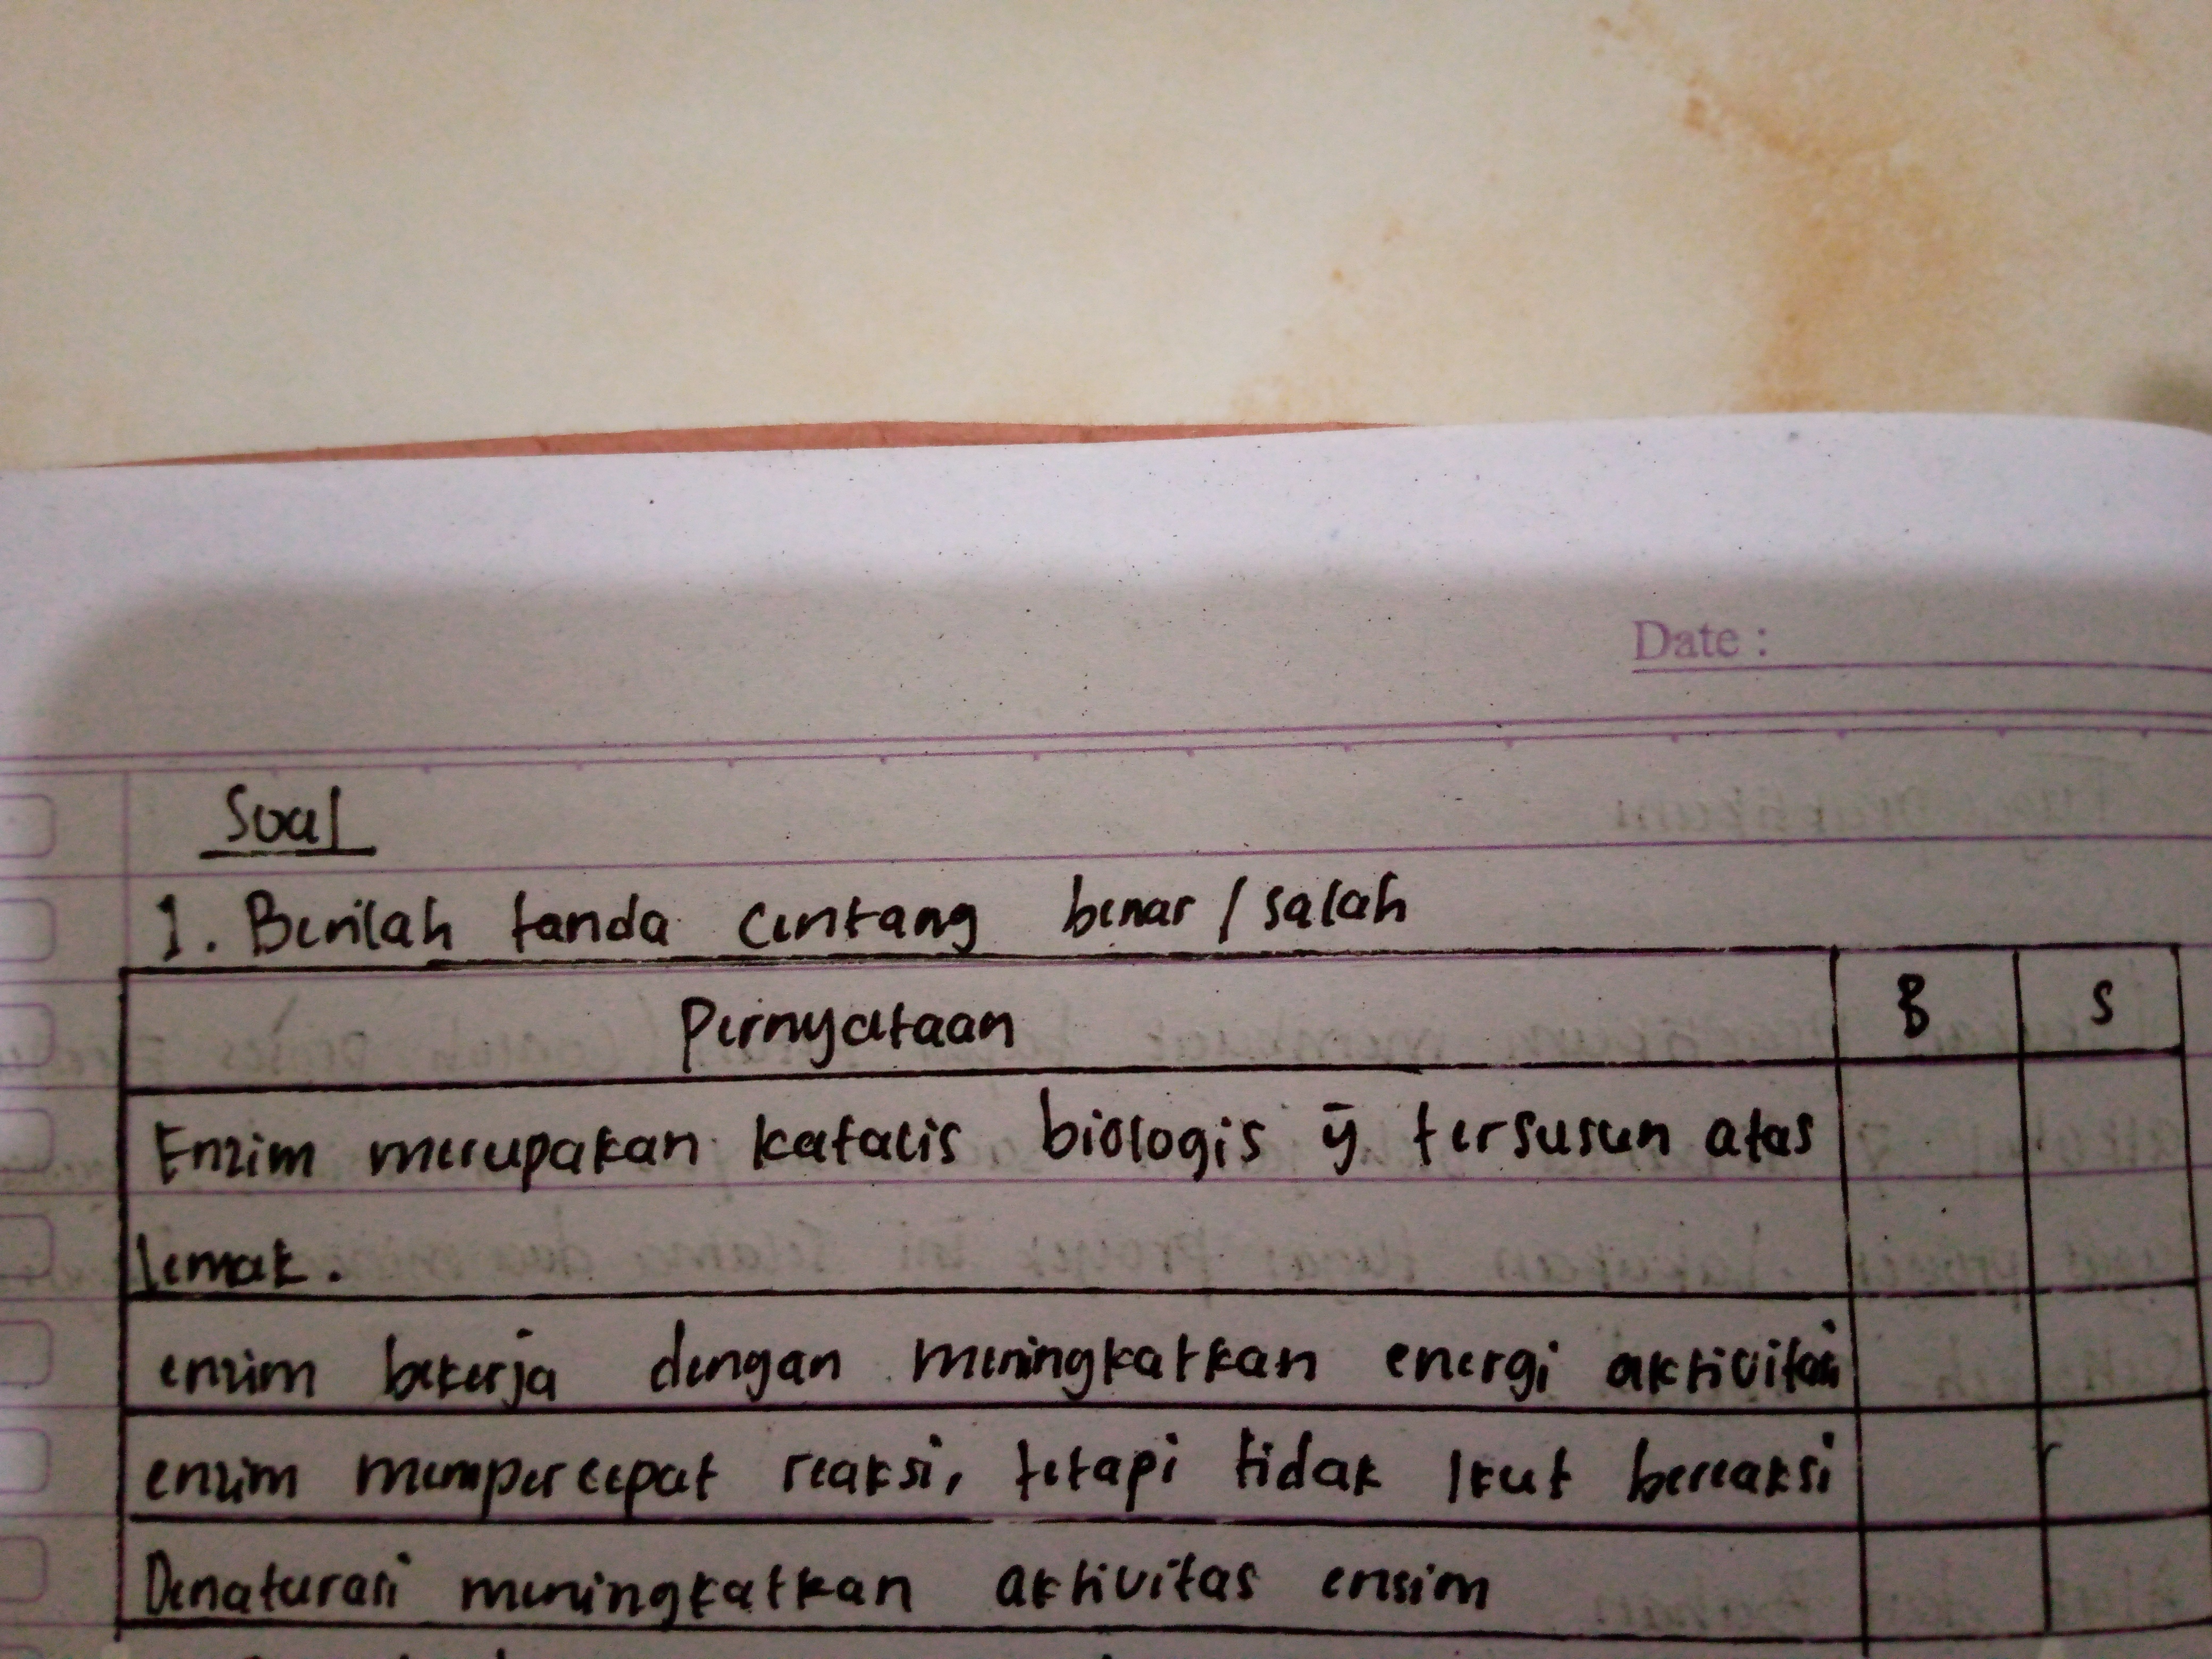 Date :
Soal
1. Berilah tanda centang benar / salah
Pernyataan B S
Enzim merupakan katalis biologis ȳ tersusun atas
lemak.
enzim bekerja dengan meningkatkan energi aktivitas
enzim mempercepat reaksi, tetapi tidak ikut bereaksi
Denaturasi meningkatkan aktivitas ensim